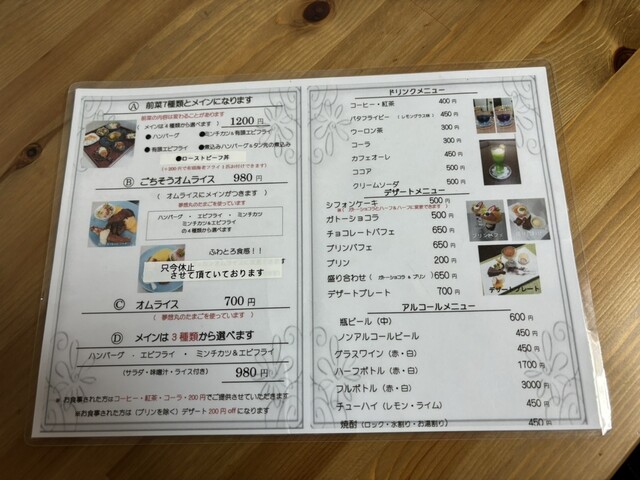 Ⓐ 前菜7種類とメインになります
前菜の内容は変わることがあります
( メインは4種類から選べます ) 1200 円
●ハンバーグ ●ミンチカツ&有頭エビフライ
●有頭エビフライ ●煮込みハンバーグ&タン先の煮込み
●ローストビーフ丼
Ⓑ ごちそうオムライス 980 円
( オムライスにメインがつきます )
夢想丸のたまごを使っています
ハンバーグ ・ エビフライ ・ ミンチカツ
ミンチカツ&エビフライ
の4種類から選べます
ふわとろ食感!!
只今休止
させて頂ていております
Ⓒ オムライス 700 円
(夢想丸のたまごを使っています)
Ⓓ メインは3種類から選べます
ハンバーグ ・ エビフライ ・ ミンチカツ&エビフライ
(サラダ・味噌汁・ライス付き) 980 円
※ お食事された方はコーヒー・紅茶・コーラ・200円でご提供させていただきます
※お食事された方は(プリンを除く)デザート200円offになります
ドリンクメニュー
コーヒー・紅茶 400 円
バタフライピー (レモングラス味) 450 円
ウーロン茶 300 円
コーラ 300 円
カフェオーレ 450 円
ココア 500 円
クリームソーダ 500 円
デザートメニュー
シフォンケーキ 500 円
ガトーショコラ 500 円
チョコレートパフェ 650 円
プリンパフェ 650 円
プリン 200 円
盛り合わせ ( ガトーショコラ & プリン ) 650 円
デザートプレート 700 円
プリンパフェ
デザートプレート
アルコールメニュー
瓶ビール(中) 600 円
ノンアルコールビール 450 円
グラスワイン(赤・白) 450 円
ハーフボトル(赤・白) 1700 円
フルボトル(赤・白) 3000 円
チューハイ(レモン・ライム) 450 円
焼酎(ロック・水割り・お湯割り) 450 円